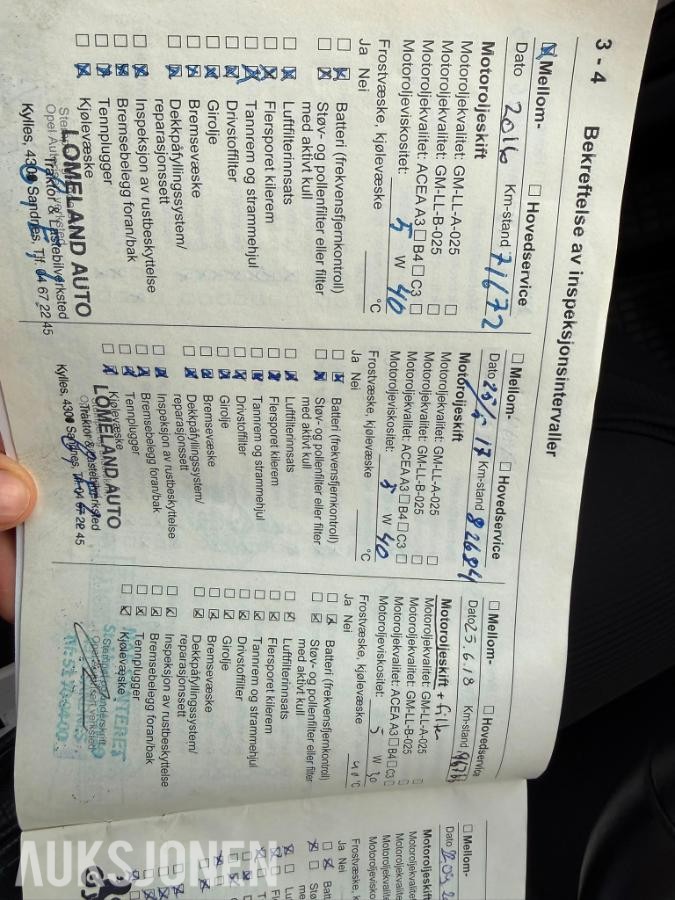 3 - 4 Bekreftelse av inspeksjonsintervaller
Mellom- Hovedservice
Dato 2016 Km-stand 71672
Motoroljeskift
Motoroljekvalitet: GM-LL-A-025
Motoroljekvalitet: GM-LL-B-025
Motoroljekvalitet: ACEA A3 B4 C3
Motoroljeviskositet: 5 W 40
Frostvæske, kjølevæske °C
Ja Nei
Batteri (frekvensfjernkontroll)
Støv- og pollenfilter eller filter
med aktivt kull
Luftfilterinnsats
Flersporet kilerem
Tannrem og strammehjul
Drivstoffilter
Girolje
Bremsevæske
Dekkpåfyllingssystem/
reparasjonssett
Inspeksjon av rustbeskyttelse
Bremsebelegg foran/bak
Tennplugger
Kjølevæske
LOMELAND AUTO
Traktor & Lastebilverksted
Kylles, 4300 Sandnes, Tlf. 04 67 22 45
Mellom- Hovedservice
Dato 23/5 17 Km-stand 82684
Motoroljeskift
Motoroljekvalitet: GM-LL-A-025
Motoroljekvalitet: GM-LL-B-025
Motoroljekvalitet: ACEA A3 B4 C3
Motoroljeviskositet: 5 W 40
Frostvæske, kjølevæske °C
Ja Nei
Batteri (frekvensfjernkontroll)
Støv- og pollenfilter eller filter
med aktivt kull
Luftfilterinnsats
Flersporet kilerem
Tannrem og strammehjul
Drivstoffilter
Girolje
Bremsevæske
Dekkpåfyllingssystem/
reparasjonssett
Inspeksjon av rustbeskyttelse
Bremsebelegg foran/bak
Tennplugger
Kjølevæske
LOMELAND AUTO
Traktor & Lastebilverksted
Kylles, 4300 Sandnes, Tlf. 04 67 22 45
Mellom- Hovedservice
Dato 25.6.18 Km-stand
Motoroljeskift + filter
Motoroljekvalitet: GM-LL-A-025
Motoroljekvalitet: GM-LL-B-025
Motoroljekvalitet: ACEA A3 B4 C3
Motoroljeviskositet: 5 W 30
Frostvæske, kjølevæske °C
Ja Nei
Batteri (frekvensfjernkontroll)
Støv- og pollenfilter eller filter
med aktivt kull
Luftfilterinnsats
Flersporet kilerem
Tannrem og strammehjul
Drivstoffilter
Girolje
Bremsevæske
Dekkpåfyllingssystem/
reparasjonssett
Inspeksjon av rustbeskyttelse
Bremsebelegg foran/bak
Tennplugger
Kjølevæske
Mellom-
Dato
Motoroljeskift
Motoroljekvalitet
Motoroljekvalitet
Motoroljekvalitet
Frostvæske, k
Ja Nei
AUKSJONEN